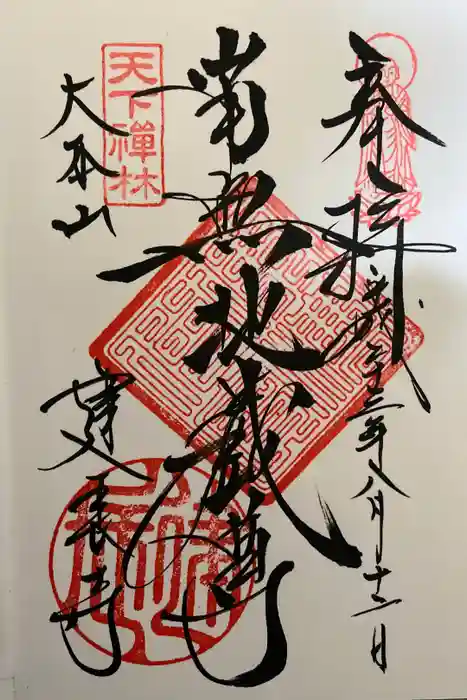 奉拝
平成二十三年八月十二日
南無地蔵尊
天下禪林
大本山
建長寺